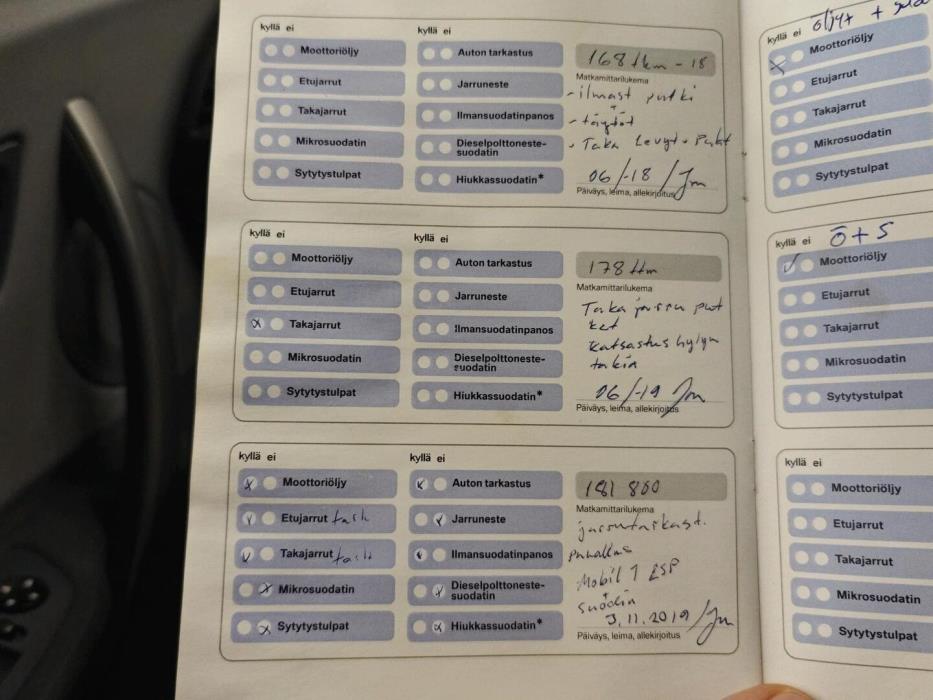 kyllä ei
kyllä ei
Moottoriöljy
Auton tarkastus
168 tkm - 18
Etujarrut
Jarruneste
Matkamittarilukema
- ilmast putki
+
Takajarrut
Ilmansuodatinpanos
- täytöt
Mikrosuodatin
Dieselpolttoneste-
suodatin
- Taka Levyt + Palat
Sytytystulpat
Hiukkassuodatin*
06/-18 / Jm
Päiväys, leima, allekirjoitus
kyllä ei
kyllä ei
Moottoriöljy
Auton tarkastus
178 tkm
Etujarrut
Jarruneste
Matkamittarilukema
Taka jarru put
ket
Takajarrut
Ilmansuodatinpanos
katsastus hylyn
Mikrosuodatin
Dieselpolttoneste-
suodatin
takia
Sytytystulpat
Hiukkassuodatin*
06/-19 Jm
Päiväys, leima, allekirjoitus
kyllä ei
kyllä ei
Moottoriöljy
Auton tarkastus
181 800
Etujarrut tark
Jarruneste
Matkamittarilukema
jarrutarkast.
Takajarrut tark
Ilmansuodatinpanos
Mikrosuodatin
Dieselpolttoneste-
suodatin
Mobil 1 ESP
+
suodin
Sytytystulpat
Hiukkassuodatin*
3.11.2019 / Jm
Päiväys, leima, allekirjoitus
kyllä ei
öljyt +
Moottoriöljy
Etujarrut
Takajarrut
Mikrosuodatin
Sytytystulpat
kyllä ei
Ö + S
Moottoriöljy
Etujarrut
Takajarrut
Mikrosuodatin
Sytytystulpat
kyllä ei
Moottoriöljy
Etujarrut
Takajarrut
Mikrosuodatin
Sytytystulpat